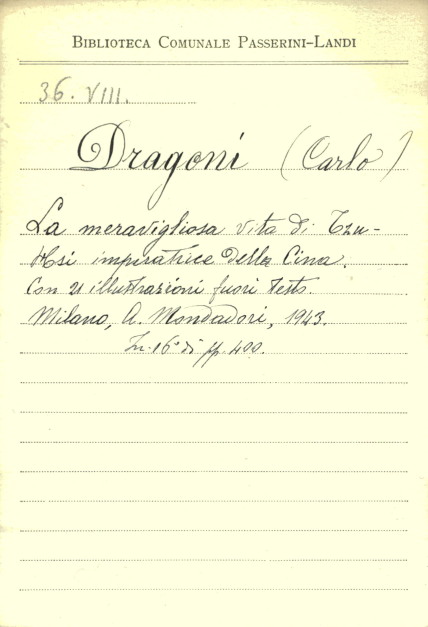 BIBLIOTECA COMUNALE PASSERINI-LANDI
36. VIII.
Dragoni (Carlo)
La meravigliosa vita di Tzu-
Hsi imperatrice della Cina.
Con 21 illustrazioni fuori testo.
Milano, A. Mondadori, 1943.
In-16° di pp. 400.